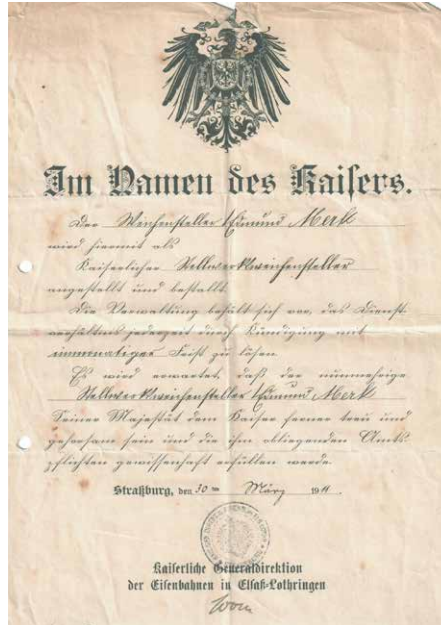 Im Namen des Kaisers.
Der Weichensteller Edmund Merk
wird hiermit als
Kaiserlicher Stellwerksweichensteller
angestellt und bestallt.
Die Verwaltung behält sich vor, das Dienst-
verhältnis jederzeit durch Kündigung mit
einmonatiger Frist zu lösen.
Es wird erwartet, daß der nunmehrige
Stellwerksweichensteller Edmund Merk
Seiner Majestät dem Kaiser ferner treu und
gehorsam sein und die ihm obliegenden Amts-
pflichten gewissenhaft erfüllen werde.
Straßburg, den 30ten März 1911.
Kaiserliche Generaldirektion
der Eisenbahnen in Elsaß-Lothringen